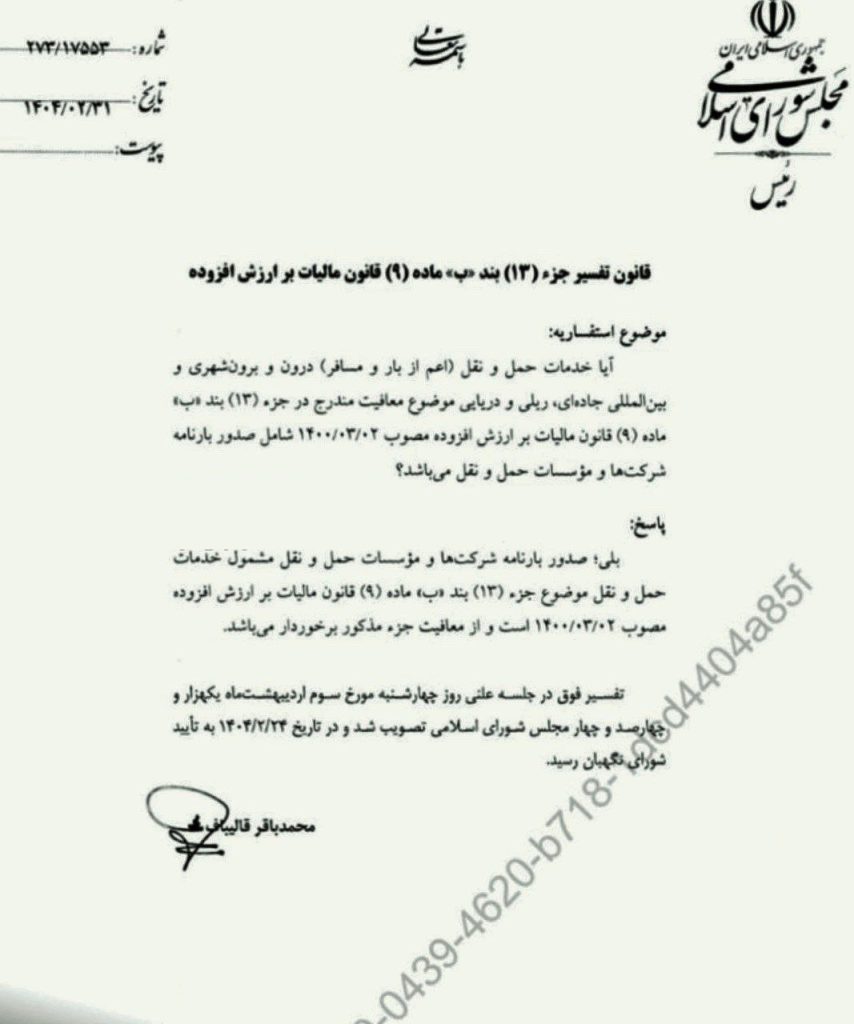 جمهوری اسلامی ایران
مجلس شورای اسلامی
رئیس
باسمه تعالی
شماره: ۲۷۳/۱۷۵۵۳
تاریخ: ۱۴۰۴/۰۲/۳۱
پیوست:
قانون تفسیر جزء (۱۳) بند «ب» ماده (۹) قانون مالیات بر ارزش افزوده
موضوع استفساریه:
آیا خدمات حمل و نقل (اعم از بار و مسافر) درون و برون‌شهری و
بین‌المللی جاده‌ای، ریلی و دریایی موضوع معافیت مندرج در جزء (۱۳) بند «ب»
ماده (۹) قانون مالیات بر ارزش افزوده مصوب ۱۴۰۰/۰۳/۰۲ شامل صدور بارنامه
شرکت‌ها و مؤسسات حمل و نقل می‌باشد؟
پاسخ:
بلی؛ صدور بارنامه شرکت‌ها و مؤسسات حمل و نقل مشمول خدمات
حمل و نقل موضوع جزء (۱۳) بند «ب» ماده (۹) قانون مالیات بر ارزش افزوده
مصوب ۱۴۰۰/۰۳/۰۲ است و از معافیت جزء مذکور برخوردار می‌باشد.
تفسیر فوق در جلسه علنی روز چهارشنبه مورخ سوم اردیبهشت‌ماه یکهزار و
چهارصد و چهار مجلس شورای اسلامی تصویب شد و در تاریخ ۱۴۰۴/۲/۲۴ به تأیید
شورای نگهبان رسید.
محمدباقر قالیباف
0439-4620-b718-1dcd4404a85f